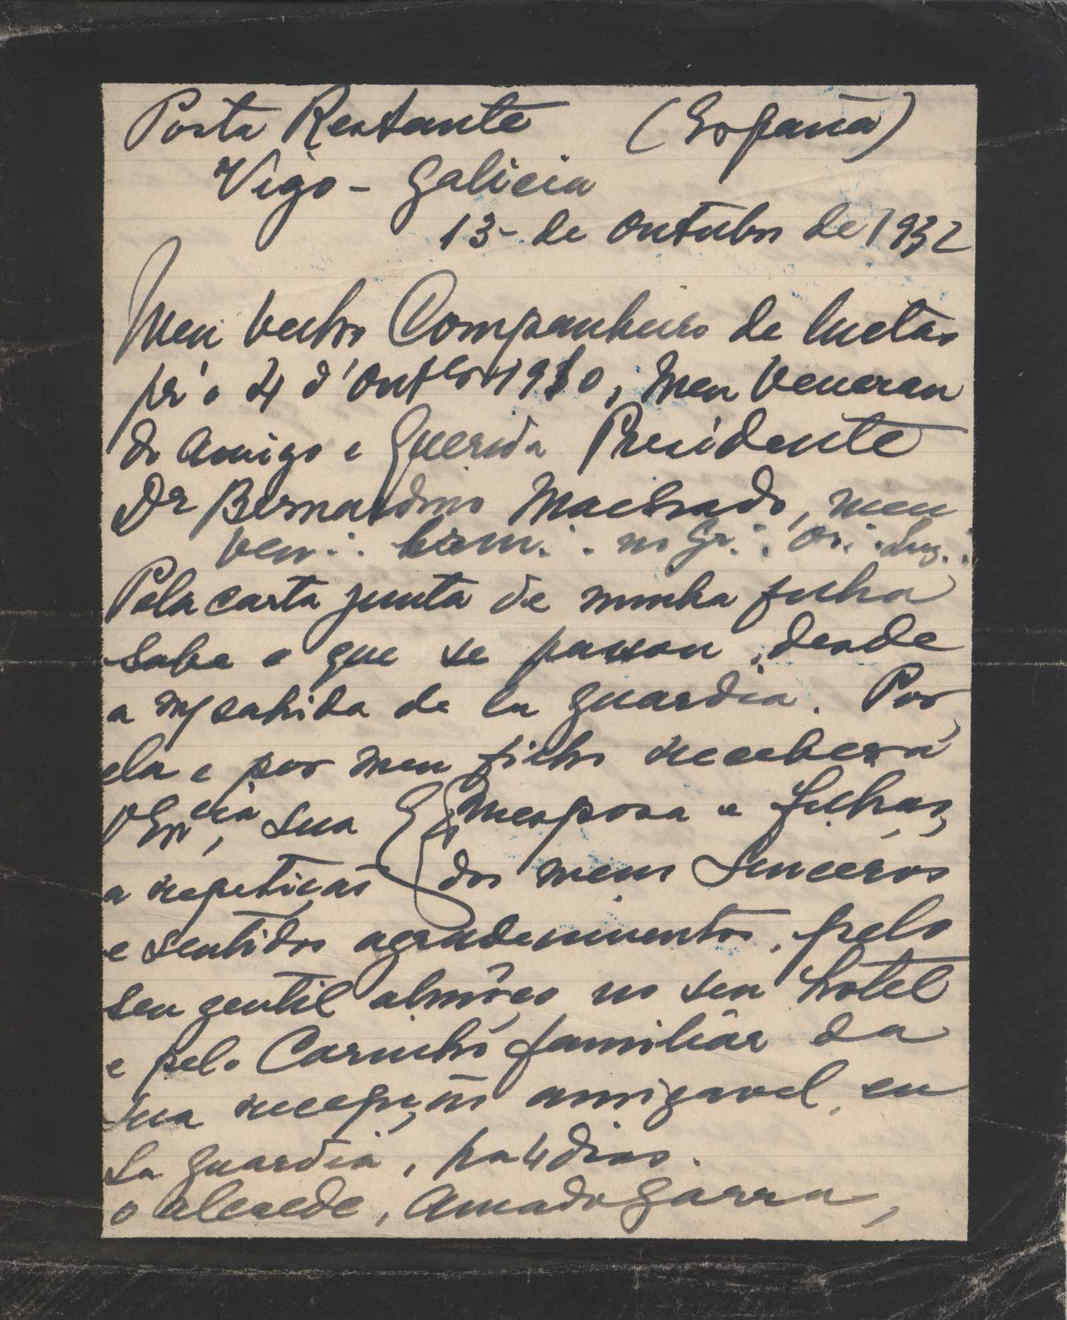 Posta Restante (España)
Vigo - Galicia
13 - de Outubro de 1932
Meu velho Companheiro de luctas
pr'o 4 d'Outbro 1910, meu Veneran
do amigo e Querido Presidente
Dr Bernardino Machado, meu
Ven∴ no Gr∴ Or∴ Luz∴
Pela carta junta de minha filha
sabe o que se passou, desde
a m/ sahida de La Guardia. Por
ela e por meu filho receberá
V Excia, sua Exma esposa e filhas,
a repetição dos meus sinceros
e sentidos agradecimentos, pelo
seu gentil almôço no seu hotel
e pelo Carinho familiar da
sua recepção amigavel, en
La Guardia, ha 4 dias.
o alcaede, Amado Garra,